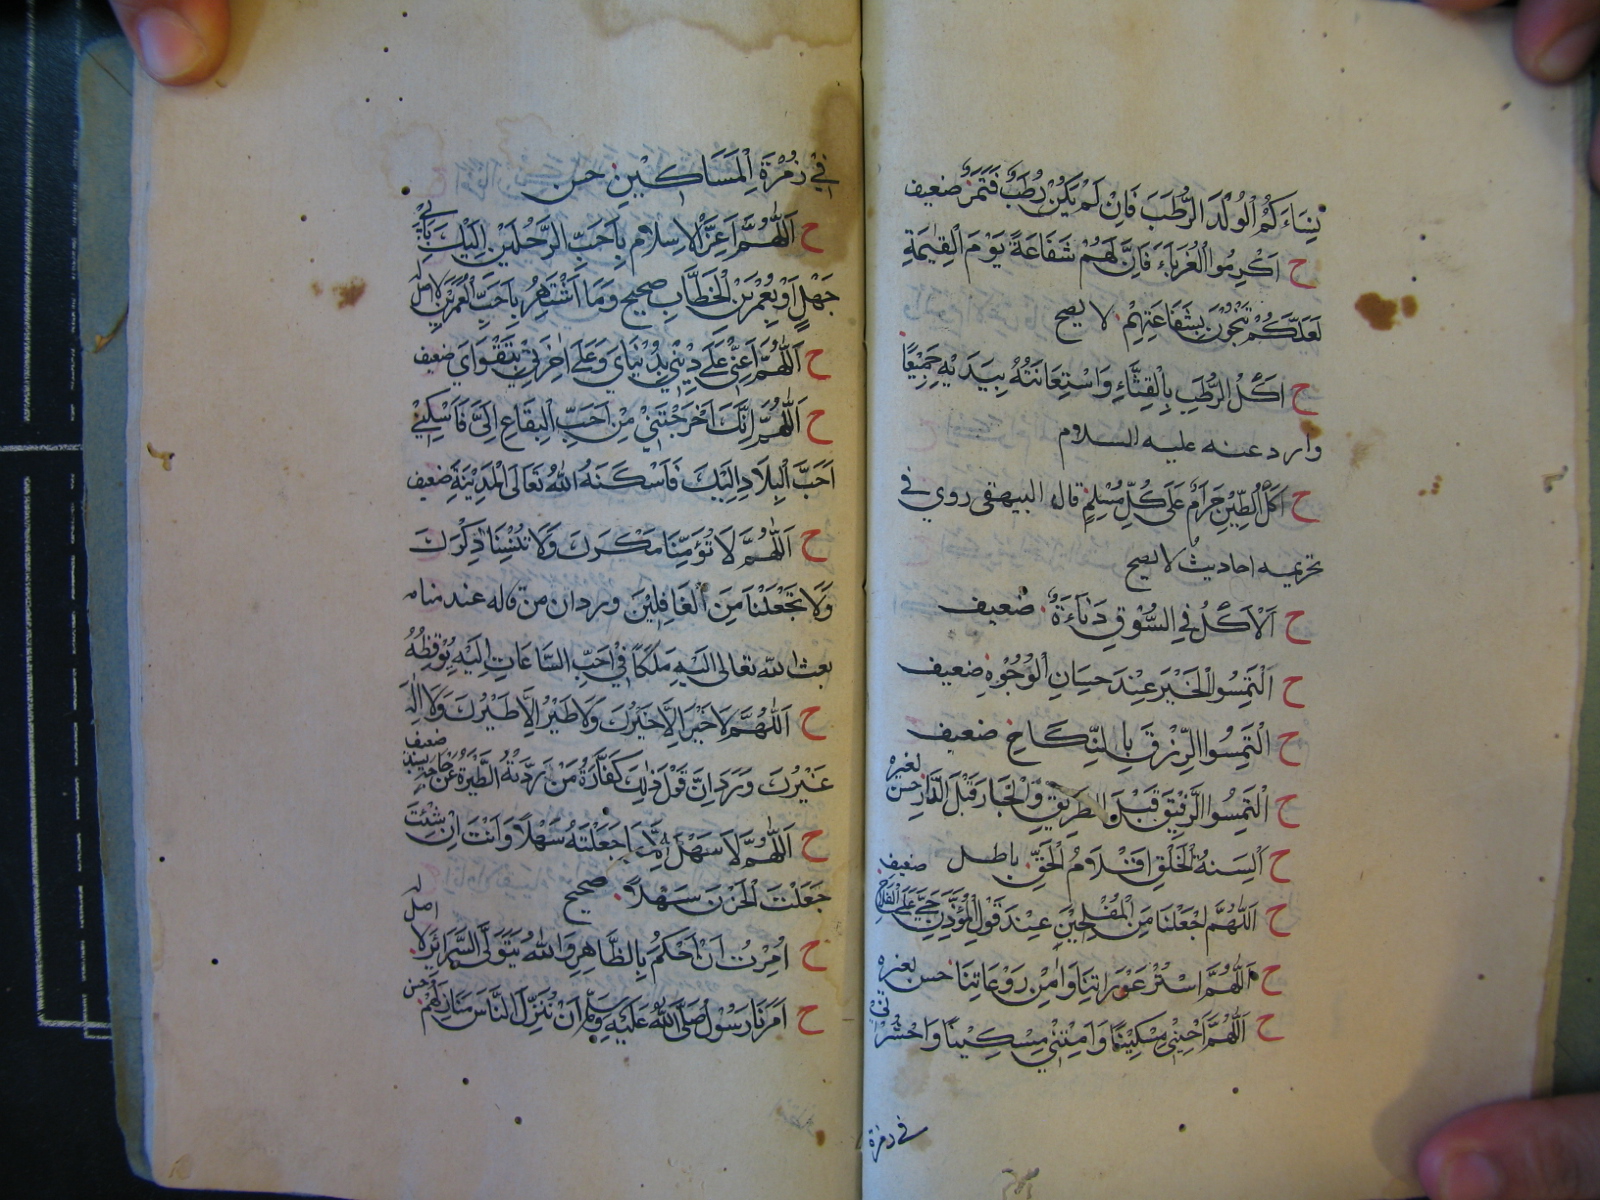 نِسَاءَكُمُ الْوُلَّدَ الرُّطَبَ فَاِنْ لَمْ يَكُنْ رُطَبٌ فَتَمْرٌ ضعيف
ح اَكْرِمُوا الْغُرَبَاءَ فَاِنَّ لَهُمْ شَفَاعَةً يَوْمَ الْقِيٰمَةِ
لَعَلَّكُمْ تَنْجُونَ بِشَفَاعَتِهِمْ لا يصح
ح اَكْلُ الرُّطَبِ بِالْقِثَّاءِ وَاسْتِعَانَتُهُ بِيَدَيْهِ جَمِيْعًا
وارد عنه عليه السلام
ح اَكْلُ الطِّيْنِ حَرَامٌ عَلَى كُلِّ مُسْلِمٍ قال البيهقى روي في
تحريمه احاديث لا يصح
ح اَلْاَكْلُ فِي السُّوْقِ دَنَاءَةٌ ضعيف
ح اَلْتَمِسُوا الْخَيْرَ عِنْدَ حِسَانِ الْوُجُوْهِ ضعيف
ح اَلْتَمِسُوا الرِّزْقَ بِالنِّكَاحِ ضعيف
ح اَلْتَمِسُوا الرَّفِيْقَ قَبْلَ الطَّرِيْقِ وَالْجَارَ قَبْلَ الدَّارِ حسن لغيره
ح اَلْسِنَةُ الْخَلْقِ اَقْلَامُ الْحَقِّ باطل
ح اَللّٰهُمَّ اجْعَلْنَا مِنَ الْمُفْلِحِيْنَ عِنْدَ قَوْلِ الْمُؤَذِّنِ حَيَّ عَلَى الْفَلَاحِ ضعيف
ح اَللّٰهُمَّ اسْتُرْ عَوْرَاتِنَا وَاٰمِنْ رَوْعَاتِنَا حسن لغيره
ح اَللّٰهُمَّ اَحْيِنِيْ مِسْكِيْنًا وَاَمِتْنِيْ مِسْكِيْنًا وَاحْشُرْنِيْ
في زمرة
فِيْ زُمْرَةِ الْمَسَاكِيْنِ حسن
ح اَللّٰهُمَّ اَعِزَّ الْاِسْلَامَ بِاَحَبِّ الرَّجُلَيْنِ اِلَيْكَ بِاَبِيْ
جَهْلٍ اَوْ بِعُمَرَ بْنِ الْخَطَّابِ صحيح وَمَا اشْتَهَرَ بِاَحَبِّ الْعُمَرَيْنِ لا اصل له
ح اَللّٰهُمَّ اَعِنِّيْ عَلَى دِيْنِيْ بِدُنْيَايَ وَعَلَى اٰخِرَتِيْ بِتَقْوَايَ ضعيف
ح اَللّٰهُمَّ اِنَّكَ اَخْرَجْتَنِيْ مِنْ اَحَبِّ الْبِقَاعِ اِلَىَّ فَاَسْكِنِّيْ
اَحَبَّ الْبِلَادِ اِلَيْكَ فَاَسْكَنَهُ اللّٰهُ تَعَالَى الْمَدِيْنَةَ ضعيف
ح اَللّٰهُمَّ لَا تُؤَمِّنَّا مَكْرَكَ وَلَا تُنْسِنَا ذِكْرَكَ
وَلَا تَجْعَلْنَا مِنَ الْغَافِلِيْنَ ورد ان من قاله عند منامه
بعث الله تعالى اليه مَلَكًا فِيْ اَحَبِّ السَّاعَاتِ اِلَيْهِ يُوْقِظُهُ
ح اَللّٰهُمَّ لَا خَيْرَ اِلَّا خَيْرُكَ وَلَا طَيْرَ اِلَّا طَيْرُكَ وَلَا اِلٰهَ
غَيْرُكَ وَرَدَ اِنَّ قَوْلَ ذٰلِكَ كَفَّارَةُ مَنْ رَدَّتْهُ الطِّيَرَةُ عَنْ حَاجَةٍ بسند ضعيف
ح اَللّٰهُمَّ لَا سَهْلَ اِلَّا مَا جَعَلْتَهُ سَهْلًا وَاَنْتَ اِنْ شِئْتَ
جَعَلْتَ الْحَزْنَ سَهْلًا صحيح
ح اُمِرْتُ اَنْ اَحْكُمَ بِالظَّاهِرِ وَاللّٰهُ يَتَوَلَّى السَّرَائِرَ لا اصل له
ح اَمَرَنَا رَسُوْلُ صَلَّى اللّٰهُ عَلَيْهِ وَسَلَّمَ اَنْ نُنَزِّلَ النَّاسَ مَنَازِلَهُمْ حسن